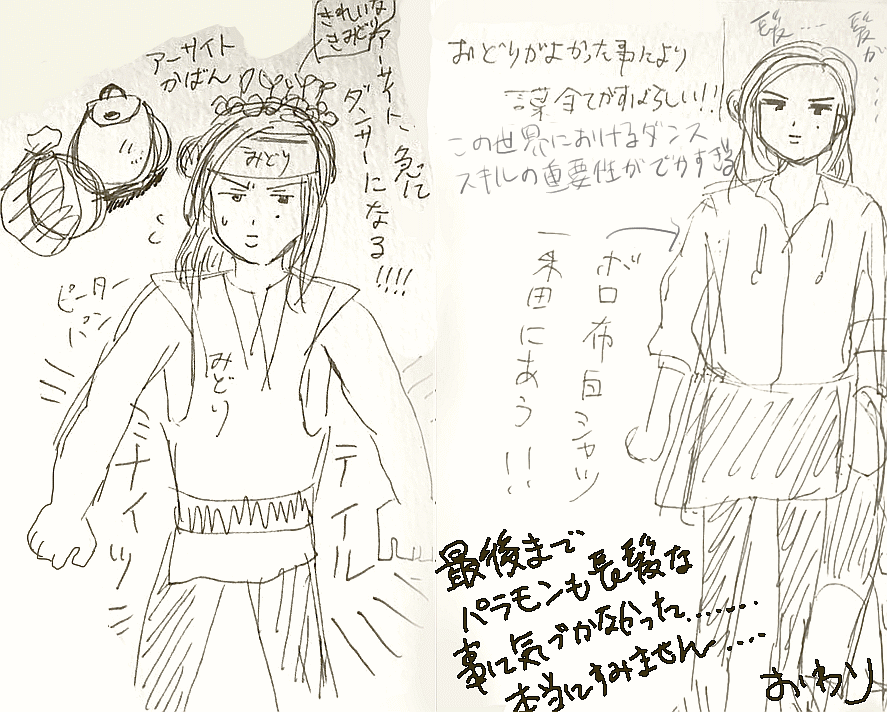 きれいな
きみどり
アーサイト
かばん
アーサイト、急に
ダンサーになる!!!!
みどり
ピーター
パン
みどり
ナイツ
テイル
おどりがよかった事により
言葉全てがすばらしい!!
この世界におけるダンス
スキルの重要性がでかすぎる
髪……
髪が……
ボロ布白シャツ
一番似あう!!
最後まで
パラモンも長髪な
事に気づかなかった.......
本当にすみません....
おわり